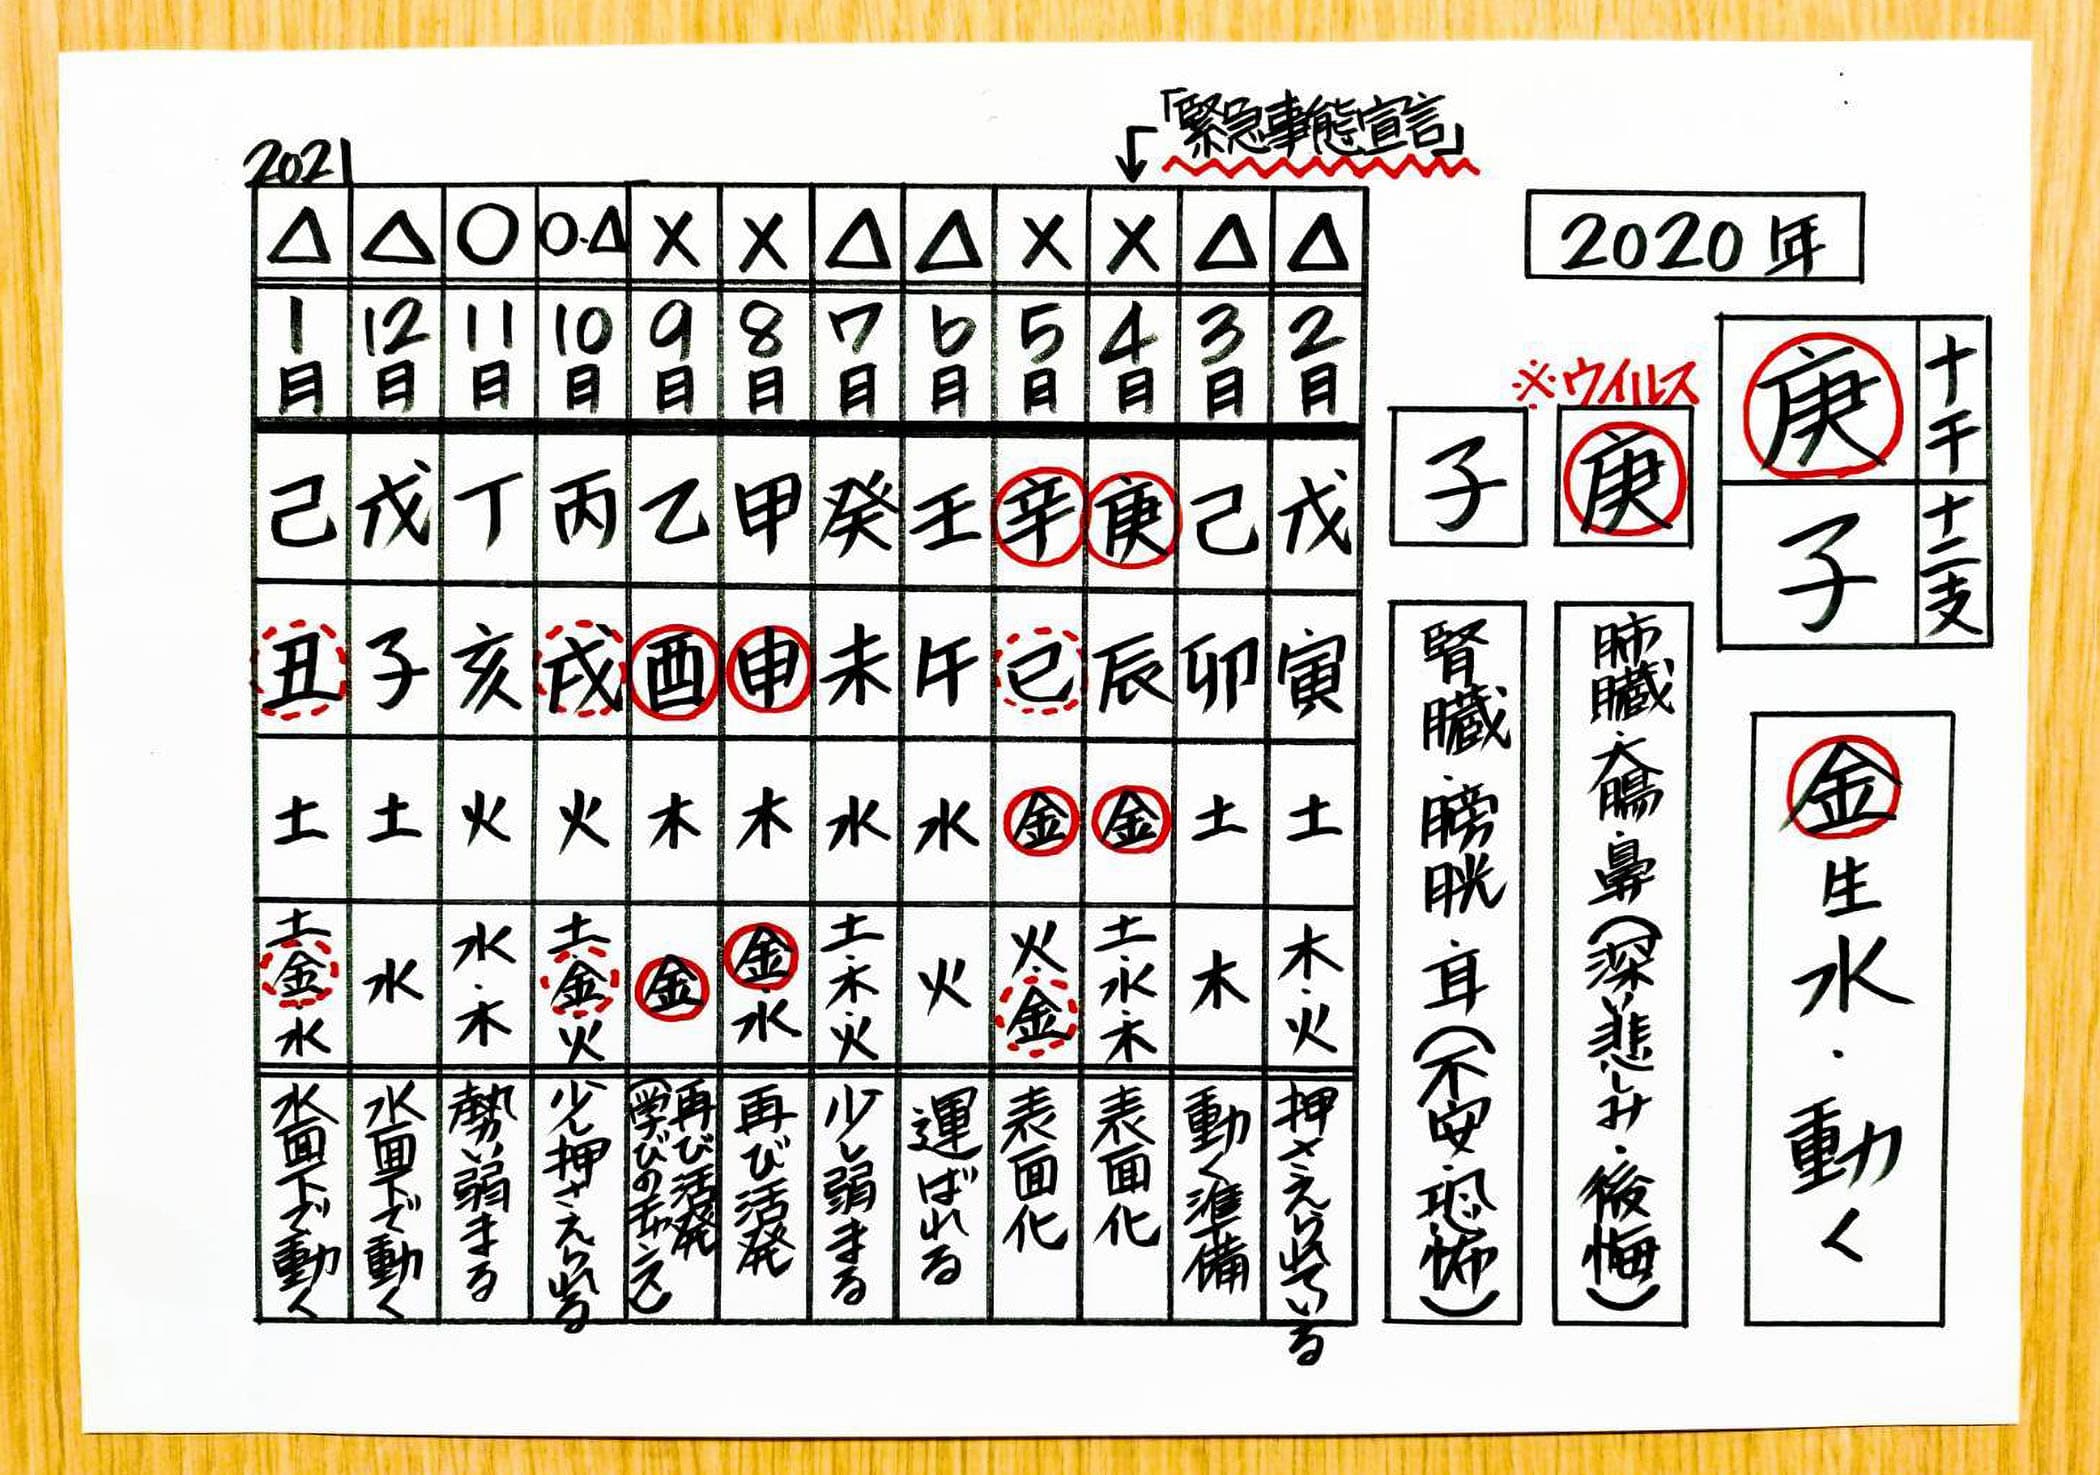 「緊急事態宣言」
2020年
庚 十干
子 十二支
金生水・動く
※ウイルス
庚
肺臓・大腸・鼻(深い悲しみ・後悔)
子
腎臓・膀胱・耳(不安・恐怖)
2021
△ △ ○ ○・△ × × △ △ × × △ △
1月 12月 11月 10月 9月 8月 7月 6月 5月 4月 3月 2月
己 戊 丁 丙 乙 甲 癸 壬 辛 庚 己 戊
丑 子 亥 戌 酉 申 未 午 己 辰 卯 寅
土 土 火 火 木 木 水 水 金 金 土 土
土・金・水 水 水・木 土・金・火 金 金・水 土・木・火 火 火・金 土・水・木 木 木・火
水面下で動く
水面下で動く
勢い弱まる
少し押さえられる
再び活発
(学びのチャンス)
再び活発
少し弱まる
運ばれる
表面化
表面化
動く準備
押さえられている